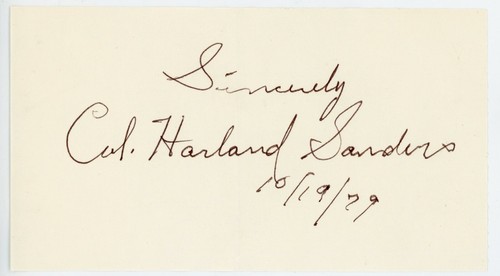 Sincerely
Col. Harland Sanders
10/19/79